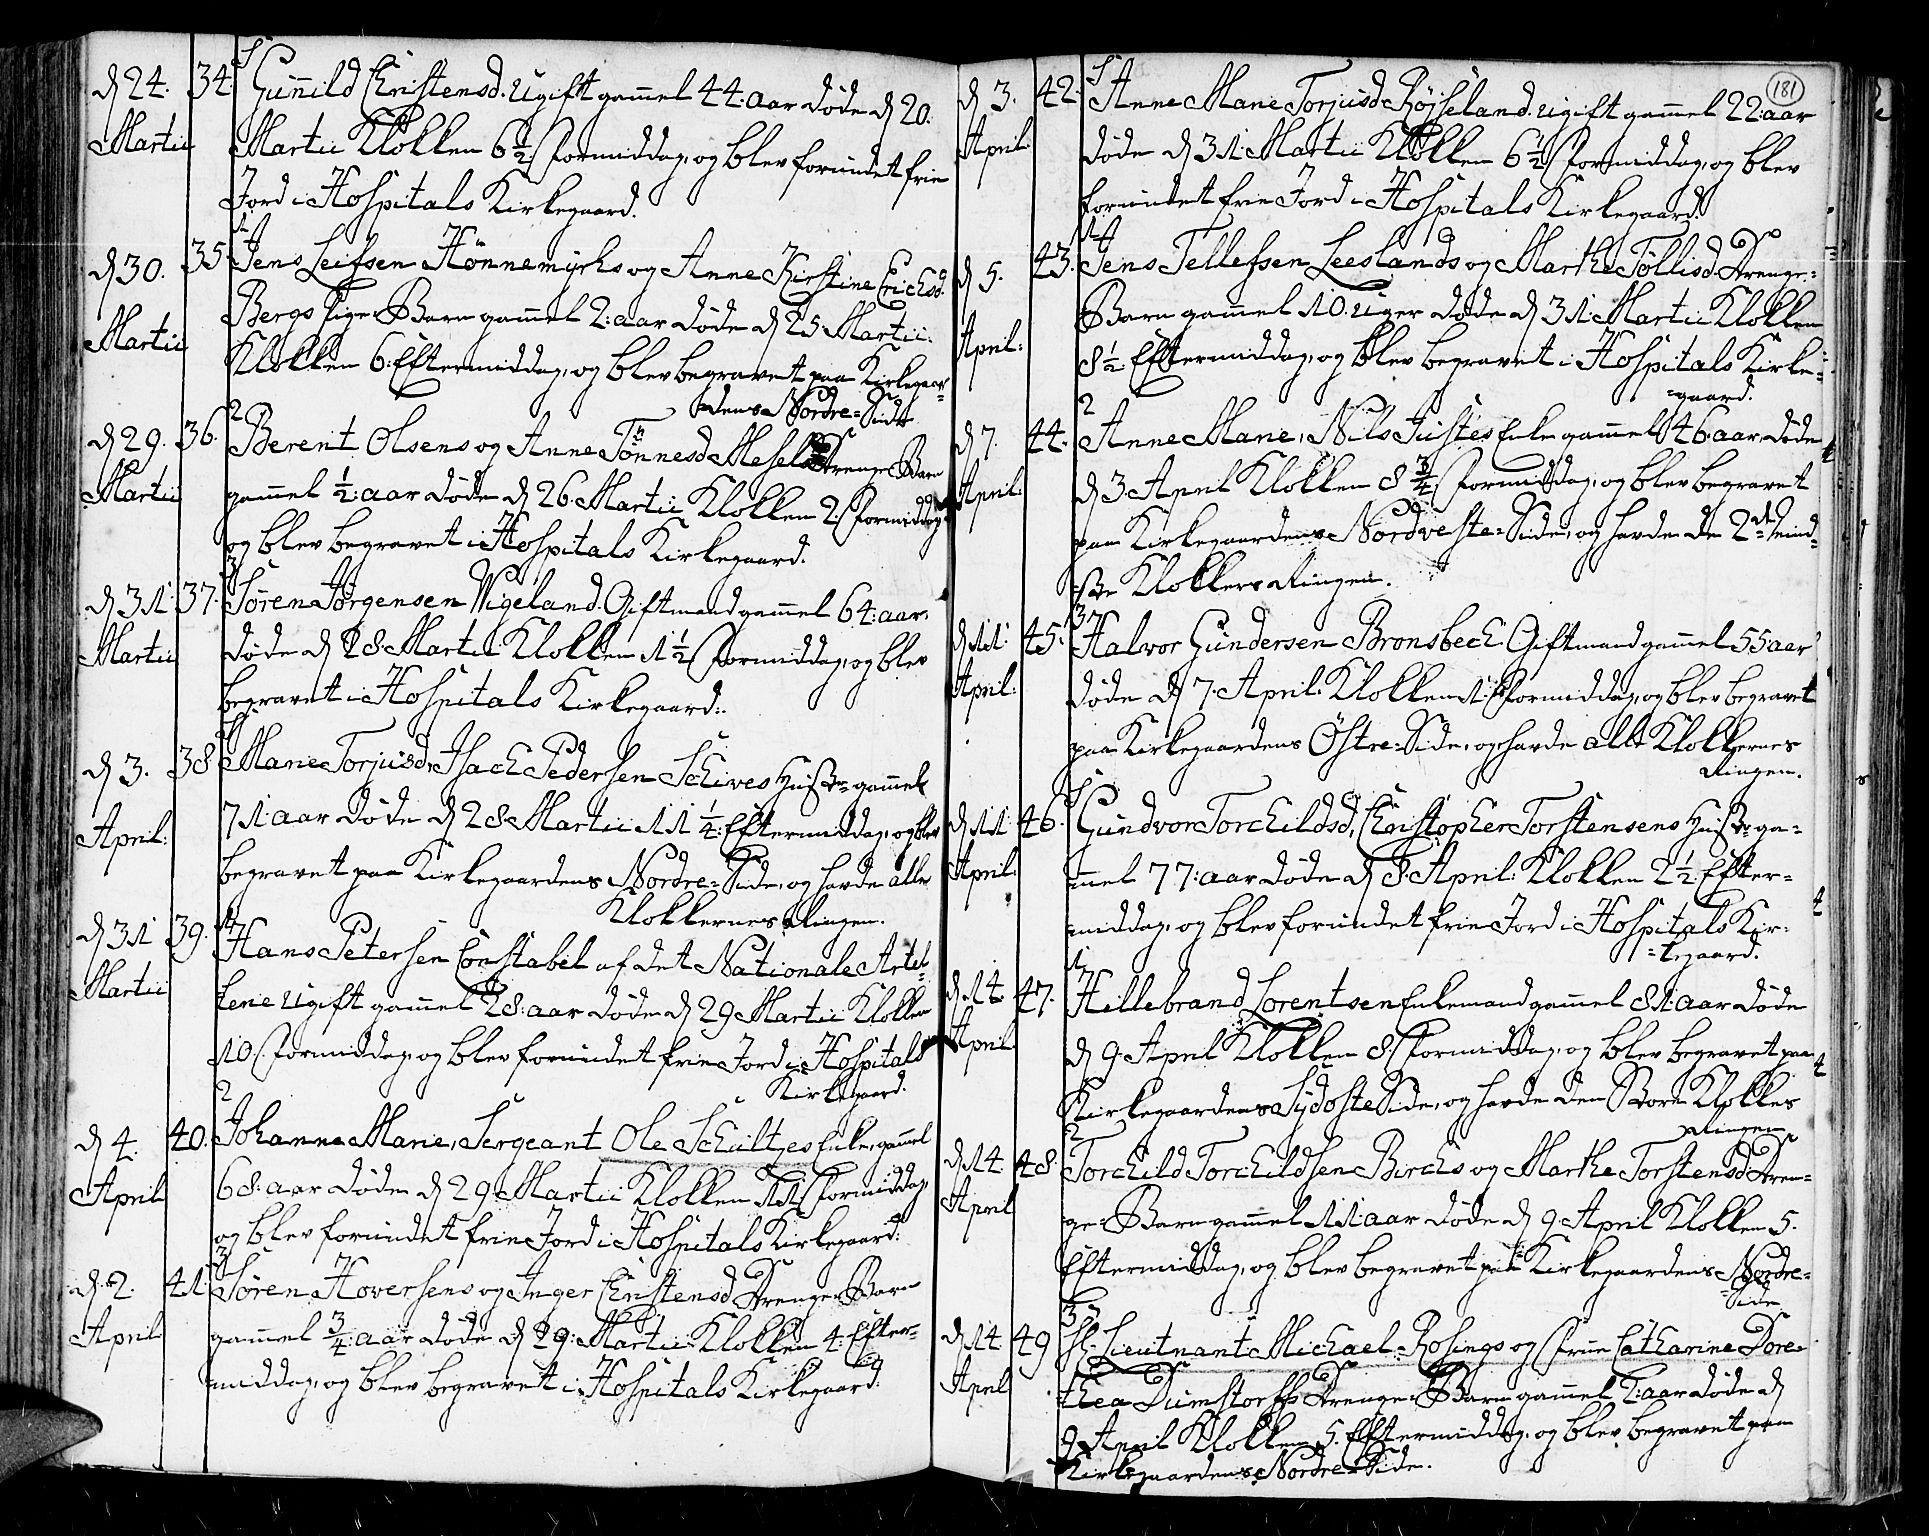 d 24. Martii 34. Gunnild Christensd. ugift gammel 44: aar døde d 20.
Martii Klokken 6 1/2 Formiddag, og blev forundet frie
Jord i Hospitals Kirkegaard.
d 30. Martii 35. 1 Jens Leifsen Hønnemyhs og Anne Kirstine Erichsd.
Bergs Pige-Barn gammel 2: aar døde d 25 Martii.
Klokken 6: Eftermiddag, og blev begravet paa Kirkegaar-
dens Nordre-Side
d 29. Martii 36. 2 Berent Olsens og Anne Tønnesd. Mesel Drenge Barn
gammel 1/2: aar døde d 26 Martii Klokken 2. Formiddag
og blev begravet i Hospitals Kirkegaard.
d 31 Martii 37. 3 Søren Jørgensen Wigeland. Giftmand gammel 64: aar.
døde d 28 Martii Klokken 1 1/2 Formiddag, og blev
begravet i Hospitals Kirkegaard:
d 3. April: 38 Marie Torjusd. Isach Pedersen Schives Hustr: gammel
71: aar døde d 28 Martii 11 1/4: Eftermiddag, og blev
begravet paa Kirkegaardens Nordre-Side, og havde alle
Klokkernes Ringen.
d 31 Martii 39. 1 Hans Petersen Constabel af det Nationale Artel-
lerie ugift gammel 28: aar døde d 29 Martii Klokken
10 Formiddag, og blev forundet frie Jord i Hospitals
Kirkegaard.
d 4. April 40. 2 Johanna Marie, Sergeant Ole Schultzes Enke, gammel
68: aar døde d 29 Martii Klokken 11 Formiddag,
og blev forundet frie Jord i Hospitals Kirkegaard.
d. 2. April 41. 3 Søren Hoversens og Inger Christensd Drenge-Barn
gammel 3/4 aar døde d 29: Martii Klokken 4. Efter-
middag, og blev begravet i Hospitals Kirkegaard.
181
d 3. April: 42. Anne Marie Torjusd. Røiseland. ugift gammel 22: aar
døde d 31: Martii Klokken 6 1/2 Formiddag, og blev
forundet frie Jord i Hospitals Kirkegaard.
d 5. April: 43. 1 Jens Tellefsen Leeslands og Marthe Tøllisd. Drenge-
Barn gammel 10. uger døde d 31: Martii Klokken
8 1/2 Eftermiddag, og blev begravet i Hospitals Kirke-
gaard.
d 7. April: 44. 2 Anne Marie, Nils Justes Enke gammel 46: aar, døde
d 3. April Klokken 8 3/4 Formiddag, og blev begravet
paa Kirkegaardens Nordveste-Side, og havde de 2de mind-
ste Klokkers Ringen.
d 11: April: 45. 3 Halvor Gundersen Bronsbech Giftmand gammel 55 aar
døde d 7. April: Klokken 1. Formiddag, og blev begravet
paa Kirkegaardens Østre-Side, og havde alle Klokkernes
Ringen.
d 11: April: 46. Gundvor Torchildsd, Christopher Torstensens Hustr: ga-
mmel 77: aar døde d 8 April: Klokken 2 1/2: Efter-
middag, og blev forundet frie Jord i Hospitals Kir-
kegaard.
d 14 April 47. 1 Hillebrand Lorentsen Enkemand gammel 81: aar døde
d 9. April Klokken 8 Formiddag, og blev begravet paa
Kirkegaardens SydosteSide, og havde den Store Klokkes
Ringen
d 14 April 48. 2 Torchild Torchildsen Birchs og Marthe Torstensd Dren-
ge-Barn gammel 11: aar døde d 9. April Klokken 5.
Eftermiddag, og blev begravet paa Kirkegaardens Nordre-
Side
d 14 April 49 3 Hr. Lieutnant Michael Rosings og Frue Catharine Doro-
thea Dumstorffs Drenge-Barn gammel 2: aar døde d
9 April Klokken 5. Eftermiddag, og blev begravet paa
Kirkegaardens Nordre-Side.